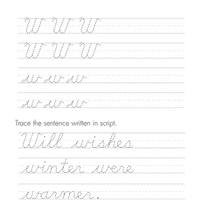 W W W
W W W
w w w
w w w
Trace the sentence written in script.
Will wishes
winter were
warmer.